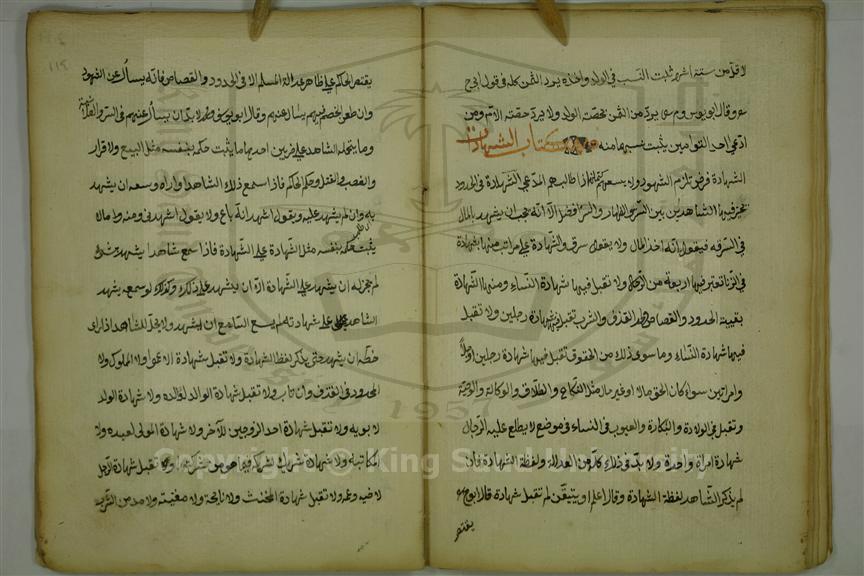 لاقل من ستة اشهر ثابت النسب في الولد واخذه يرد الثمن كله في قول ابي ح
وقال ابو يوس وم يرد من الثمن بحصته الولد ولا يرد حصته الام ومن
ادعي احد التوامين يثبت نسبهما منه كتاب الشهادات
الشهادة فرض تلزم الشهود ولا يسعهم كتمانها اذا طالبهم المدعي الشهادة في الحدود
تخير فيها الشاهد بين الستر والاظهار والستر افضل الا انه يجب ان يشهد بالمال
في السرقه فيقول انه اخذ المال ولا يقول سرق والشهادة علي مراتب منها شهادة
في الزنا تعتبر فيها اربعة من الرجال ولا تقبل فيها شهادة النساء ومنها الشهادة
بقيية الحدود والقصاص وحد القذف والشرب تقبل فيها شهادة رجلين ولا تقبل
فيها شهادة النساء وما سوي ذلك من الحقوق تقبل فيها شهادة رجلين او رجل
وامراتين سواء كان الحق مالا او غير مال مثل النكاح والطلاق والوكالة والوصية
وتقبل في الولادة والبكارة والعيوب في النساء في موضع لا يطلع عليه الرجال
شهادة امراة واحدة ولا بد في ذلك كله من العدالة ولفظة الشهادة فان
لم يذكر الشاهد لفظة الشهادة وقال اعلم او يتيقن لم تقبل شهادة قال ابوح
يقتصر
يقتصر الحاكم علي ظاهر عدالة المسلم الا في الحدود والقصاص فانه يسأل عن الشهود
وان طعن الخصم فيهم يسأل عنهم وقال ابو يوسف ومحمد لا بد ان يسأل عنهم في السر والعلانية
وما يتحمله الشاهد علي ضربين احدهما ما يثبت حكمه بنفسه مثل البيع ولاقرار
والغصب والقتل وحكم الحاكم فاذا سمع ذلك الشاهد او راه وسعه ان يشهد
به وان لم يشهد عليه ويقول اشهد انه باع ولا يقول اشهدني ومنه ما لا
يثبت حكمه بنفسه مثل الشهادة علي الشهادة فاذا سمع شاهدا يشهد بشئ
لم يجز له ان يشهد علي الشهادة الا ان يشهد علي ذلك وكذلك لو سمعه يشهد
الشاهد علي شهادته لم يسع السامع ان يشهد ولا يحل للشاهد اذا راي
خطه ان يشهد حتي يذكر لفظ الشهادة ولا تقبل شهادة الاعمي ولا المملوك ولا
المحدود في القذف وان تاب ولا تقبل شهادة الوالد لولده ولا شهادة الولد
لابويه ولا تقبل شهادة احد الزوجين للآخر ولا شهادة المولى لعبده ولا
لمكاتبه ولا شهادة شريك لشريكه فيما هو من شركته ولا تقبل شهادة الرجل
لاخيه وعمه ولا تقبل شهادة المخنث ولا نايحة ولا مغنيته ولا مدمن الشرب
Copyright © King Saud University
1957